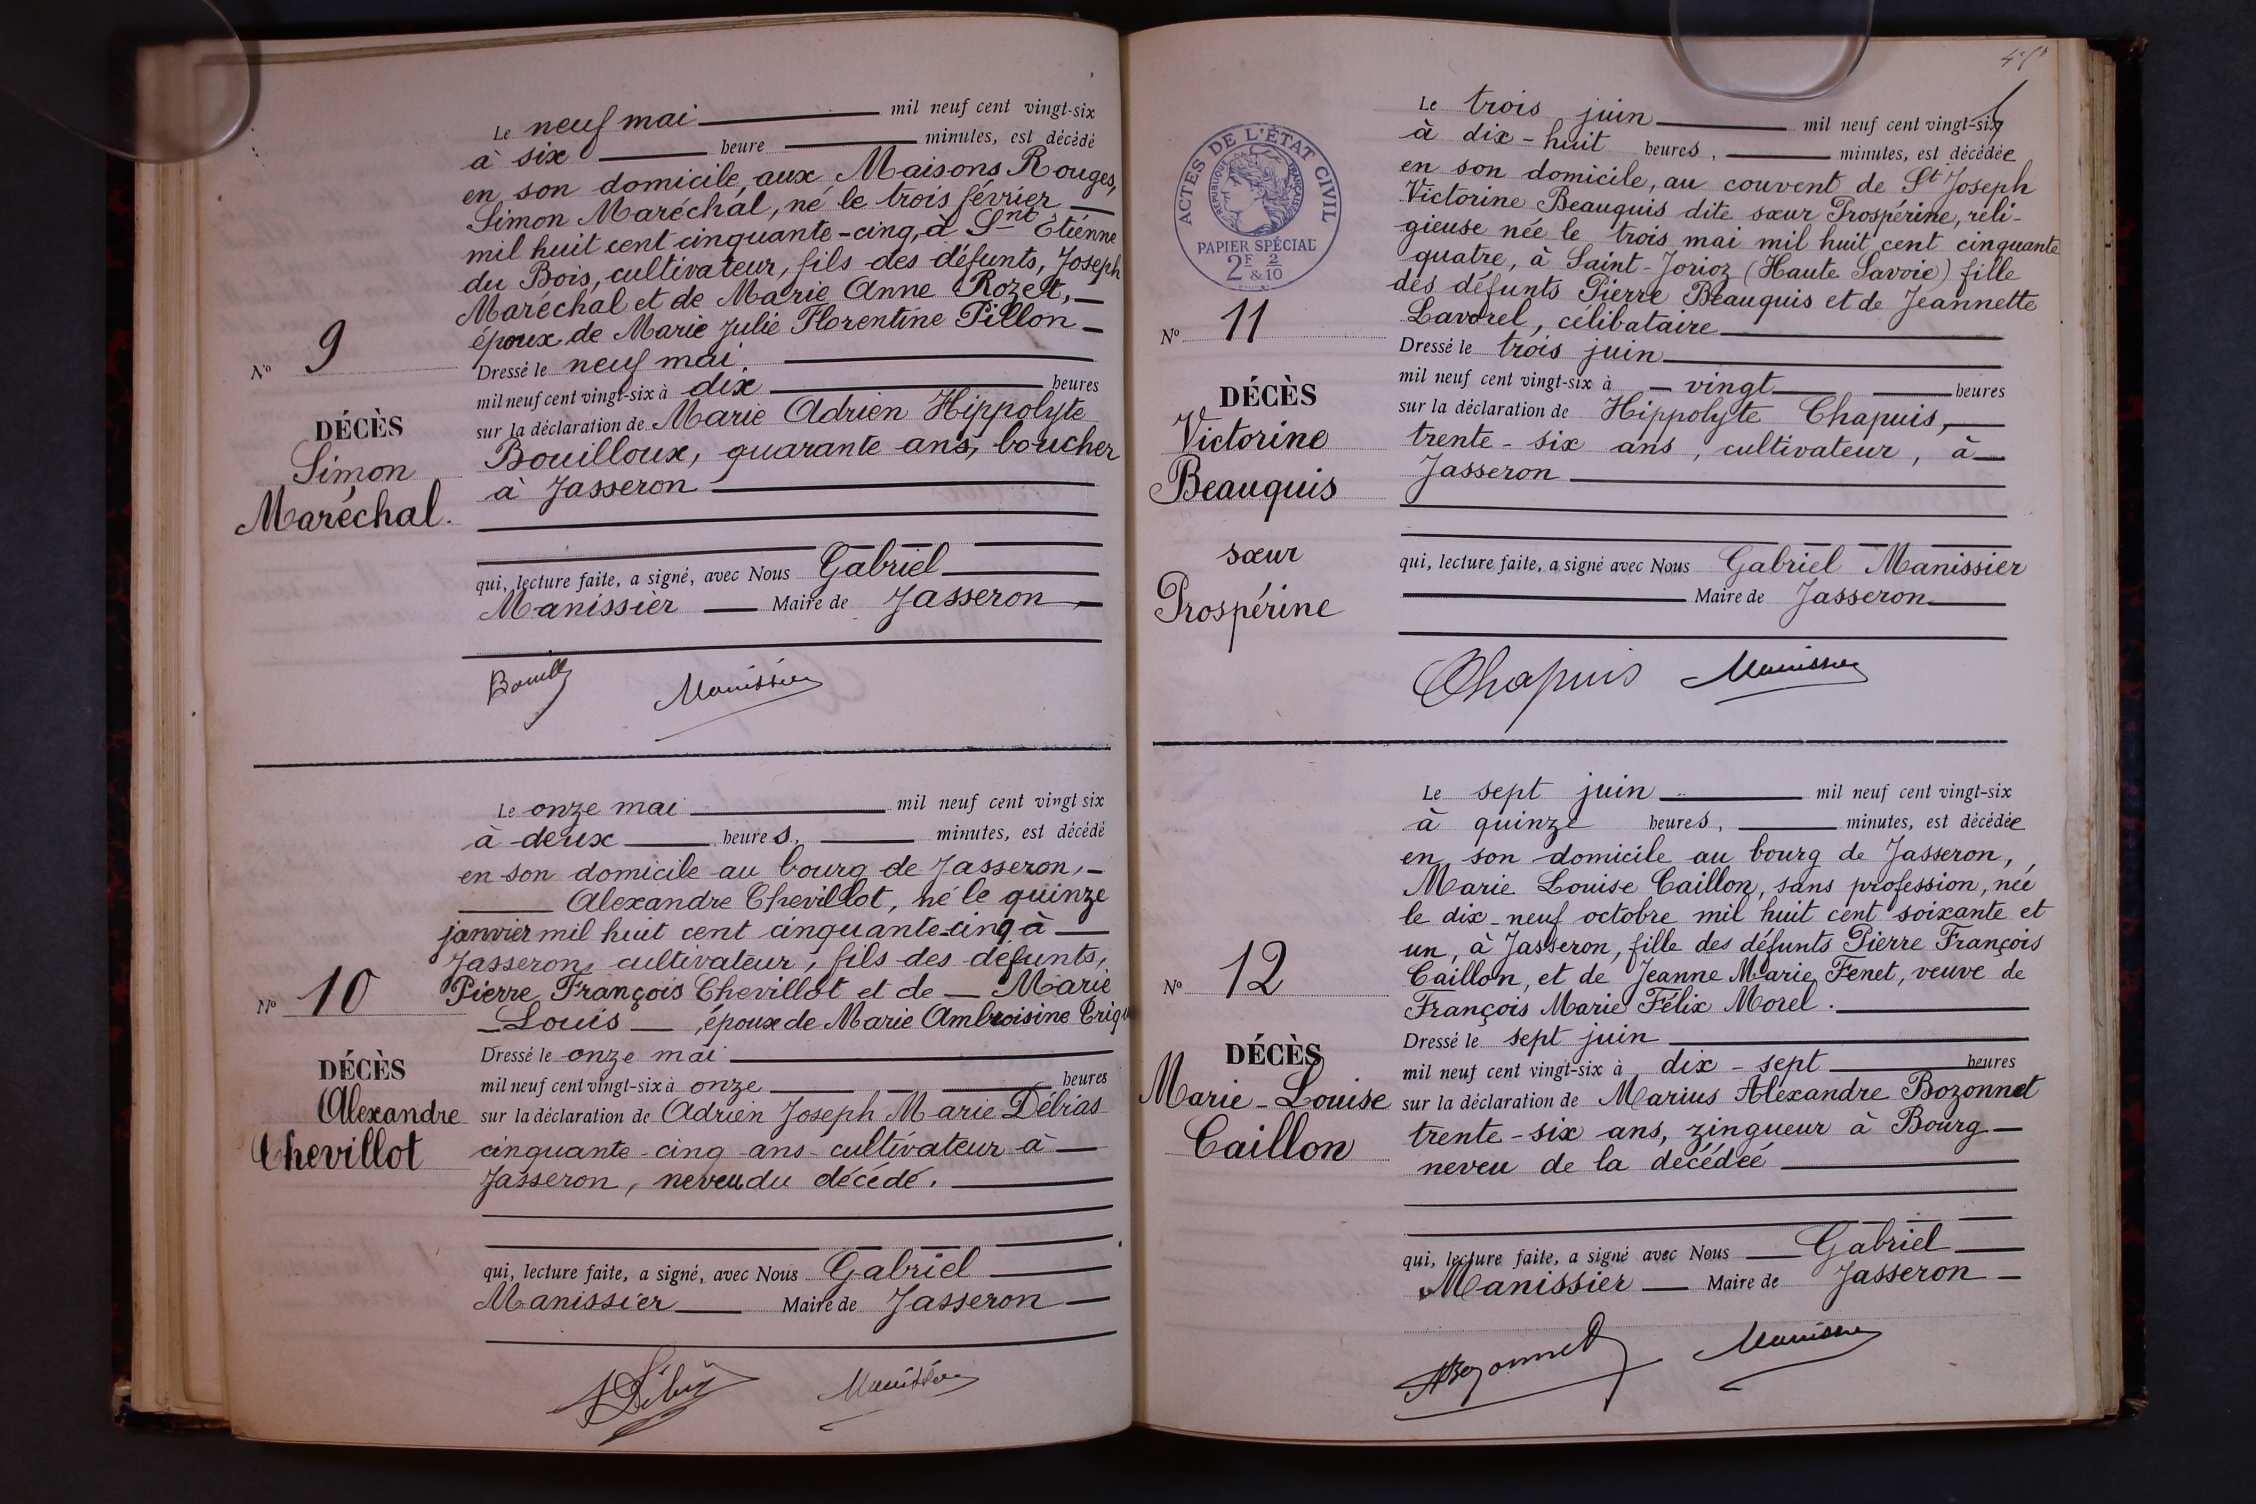 Le neuf mai mil neuf cent vingt-six
à six heure minutes, est décédé
en son domicile, aux Maisons Rouges,
Simon Maréchal, né le trois février
mil huit cent cinquante-cinq, à Snt Étienne
du Bois, cultivateur, fils des défunts, Joseph
Maréchal et de Marie Anne Rozet,
époux de Marie Julie Florentine Pillon
No 9
Dressé le neuf mai.
mil neuf cent vingt-six à dix heures
sur la déclaration de Marie Adrien Hippolyte
Bouilloux, quarante ans, boucher
à Jasseron
DÉCÈS
Simon
Maréchal.
qui, lecture faite, a signé, avec Nous Gabriel
Manissier Maire de Jasseron
Manissier
Le onze mai mil neuf cent vingt six
à deux heures, minutes, est décédé
en son domicile au bourg de Jasseron,
Alexandre Chevillot, né le quinze
janvier mil huit cent cinquante-cinq à
Jasseron, cultivateur, fils des défunts,
Pierre François Chevillot et de Marie
Louis, époux de Marie Ambroisine
No 10
Dressé le onze mai
mil neuf cent vingt-six à onze heures
sur la déclaration de Adrien Joseph Marie Débias
cinquante-cinq ans cultivateur à
Jasseron, neveu du décédé.
DÉCÈS
Alexandre
Chevillot
qui, lecture faite, a signé, avec Nous Gabriel
Manissier Maire de Jasseron
Manissier
ACTES DE L'ÉTAT CIVIL
RÉPUBLIQUE FRANÇAISE
PAPIER SPÉCIAL
2F 2
& 10
Le trois juin mil neuf cent vingt-six
à dix-huit heures, minutes, est décédée
en son domicile, au couvent de St Joseph
Victorine Beauquis dite sœur Prospérine, reli-
gieuse née le trois mai mil huit cent cinquante
quatre, à Saint-Jorioz (Haute Savoie) fille
des défunts Pierre Beauquis et de Jeannette
Lavorel, célibataire
No 11
Dressé le trois juin
mil neuf cent vingt-six à vingt heures
sur la déclaration de Hippolyte Chapuis,
trente-six ans, cultivateur, à
Jasseron
DÉCÈS
Victorine
Beauquis
sœur
Prospérine
qui, lecture faite, a signé avec Nous Gabriel Manissier
Maire de Jasseron
Chapuis Manissier
Le sept juin mil neuf cent vingt-six
à quinze heures, minutes, est décédée
en son domicile au bourg de Jasseron,
Marie Louise Caillon, sans profession, née
le dix-neuf octobre mil huit cent soixante et
un, à Jasseron, fille des défunts Pierre François
Caillon, et de Jeanne Marie Fenet, veuve de
François Marie Félix Morel.
No 12
Dressé le sept juin
mil neuf cent vingt-six à dix-sept heures
sur la déclaration de Marius Alexandre Bozonnet
trente-six ans, zingueur à Bourg
neveu de la décédée
DÉCÈS
Marie-Louise
Caillon
qui, lecture faite, a signé avec Nous Gabriel
Manissier Maire de Jasseron
ABozonnet Manissier